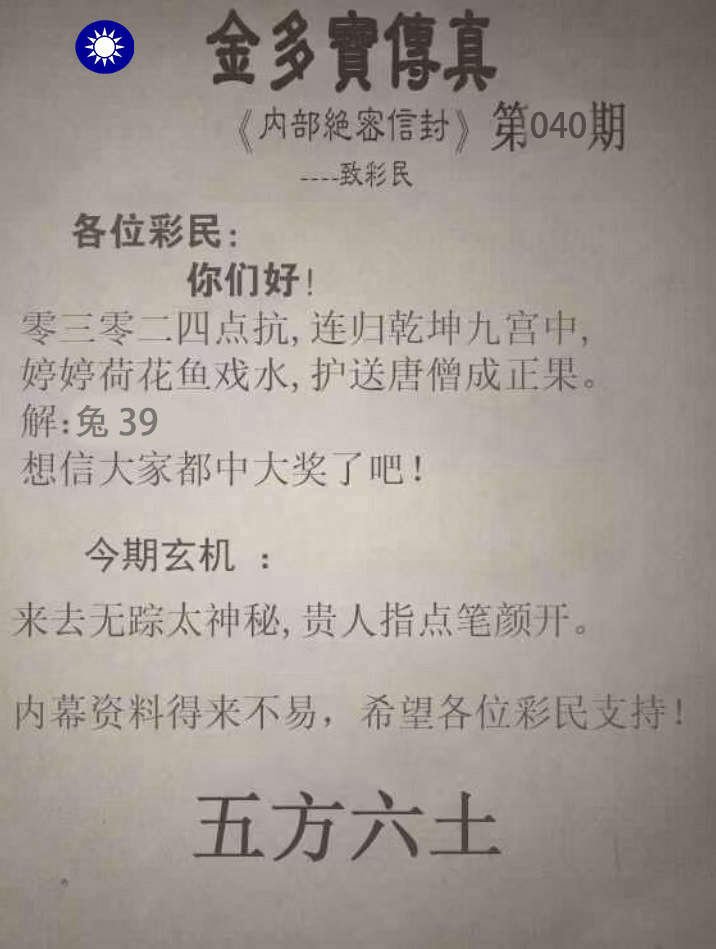 金多寳傳真
《内部絕密信封》第040期
----致彩民
各位彩民:
你们好!
零三零二四点抗,连归乾坤九宫中,
婷婷荷花鱼戏水,护送唐僧成正果。
解:兔 39
想信大家都中大奖了吧!
今期玄机 :
来去无踪太神秘,贵人指点笔颜开。
内幕资料得来不易，希望各位彩民支持!
五方六土